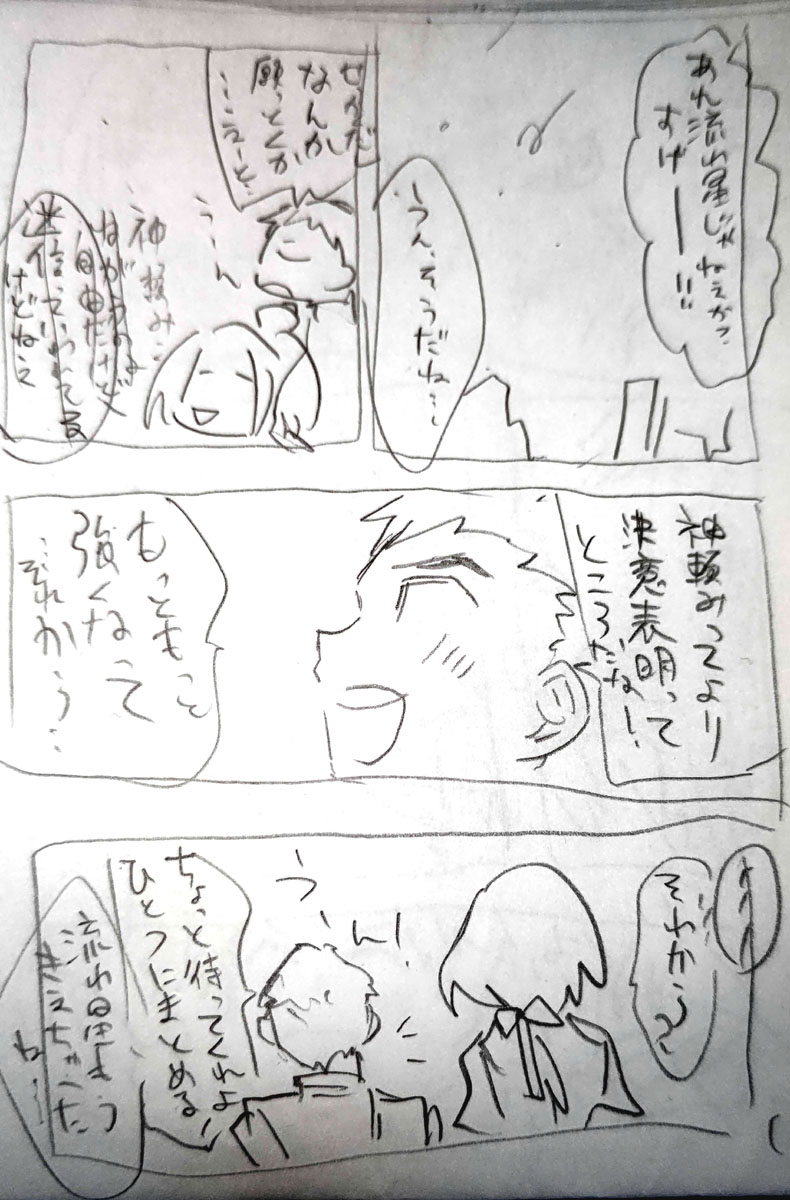 あれ流れ星じゃねえか?
すげーー!!
うん、そうだね…
せっかだ
なんか
願っとくか
…えーと
うーん
神頼み…
ねがうのは
自由だけど
迷信っていってる
けどねえ
神頼みってより
決意表明って
ところだな!
もっともっと
強くなって
…それから…
それから?
う、ん!
ちょっと待ってくれよ
ひとつにまとめる!
流れ星もう
きえちゃった
ね…